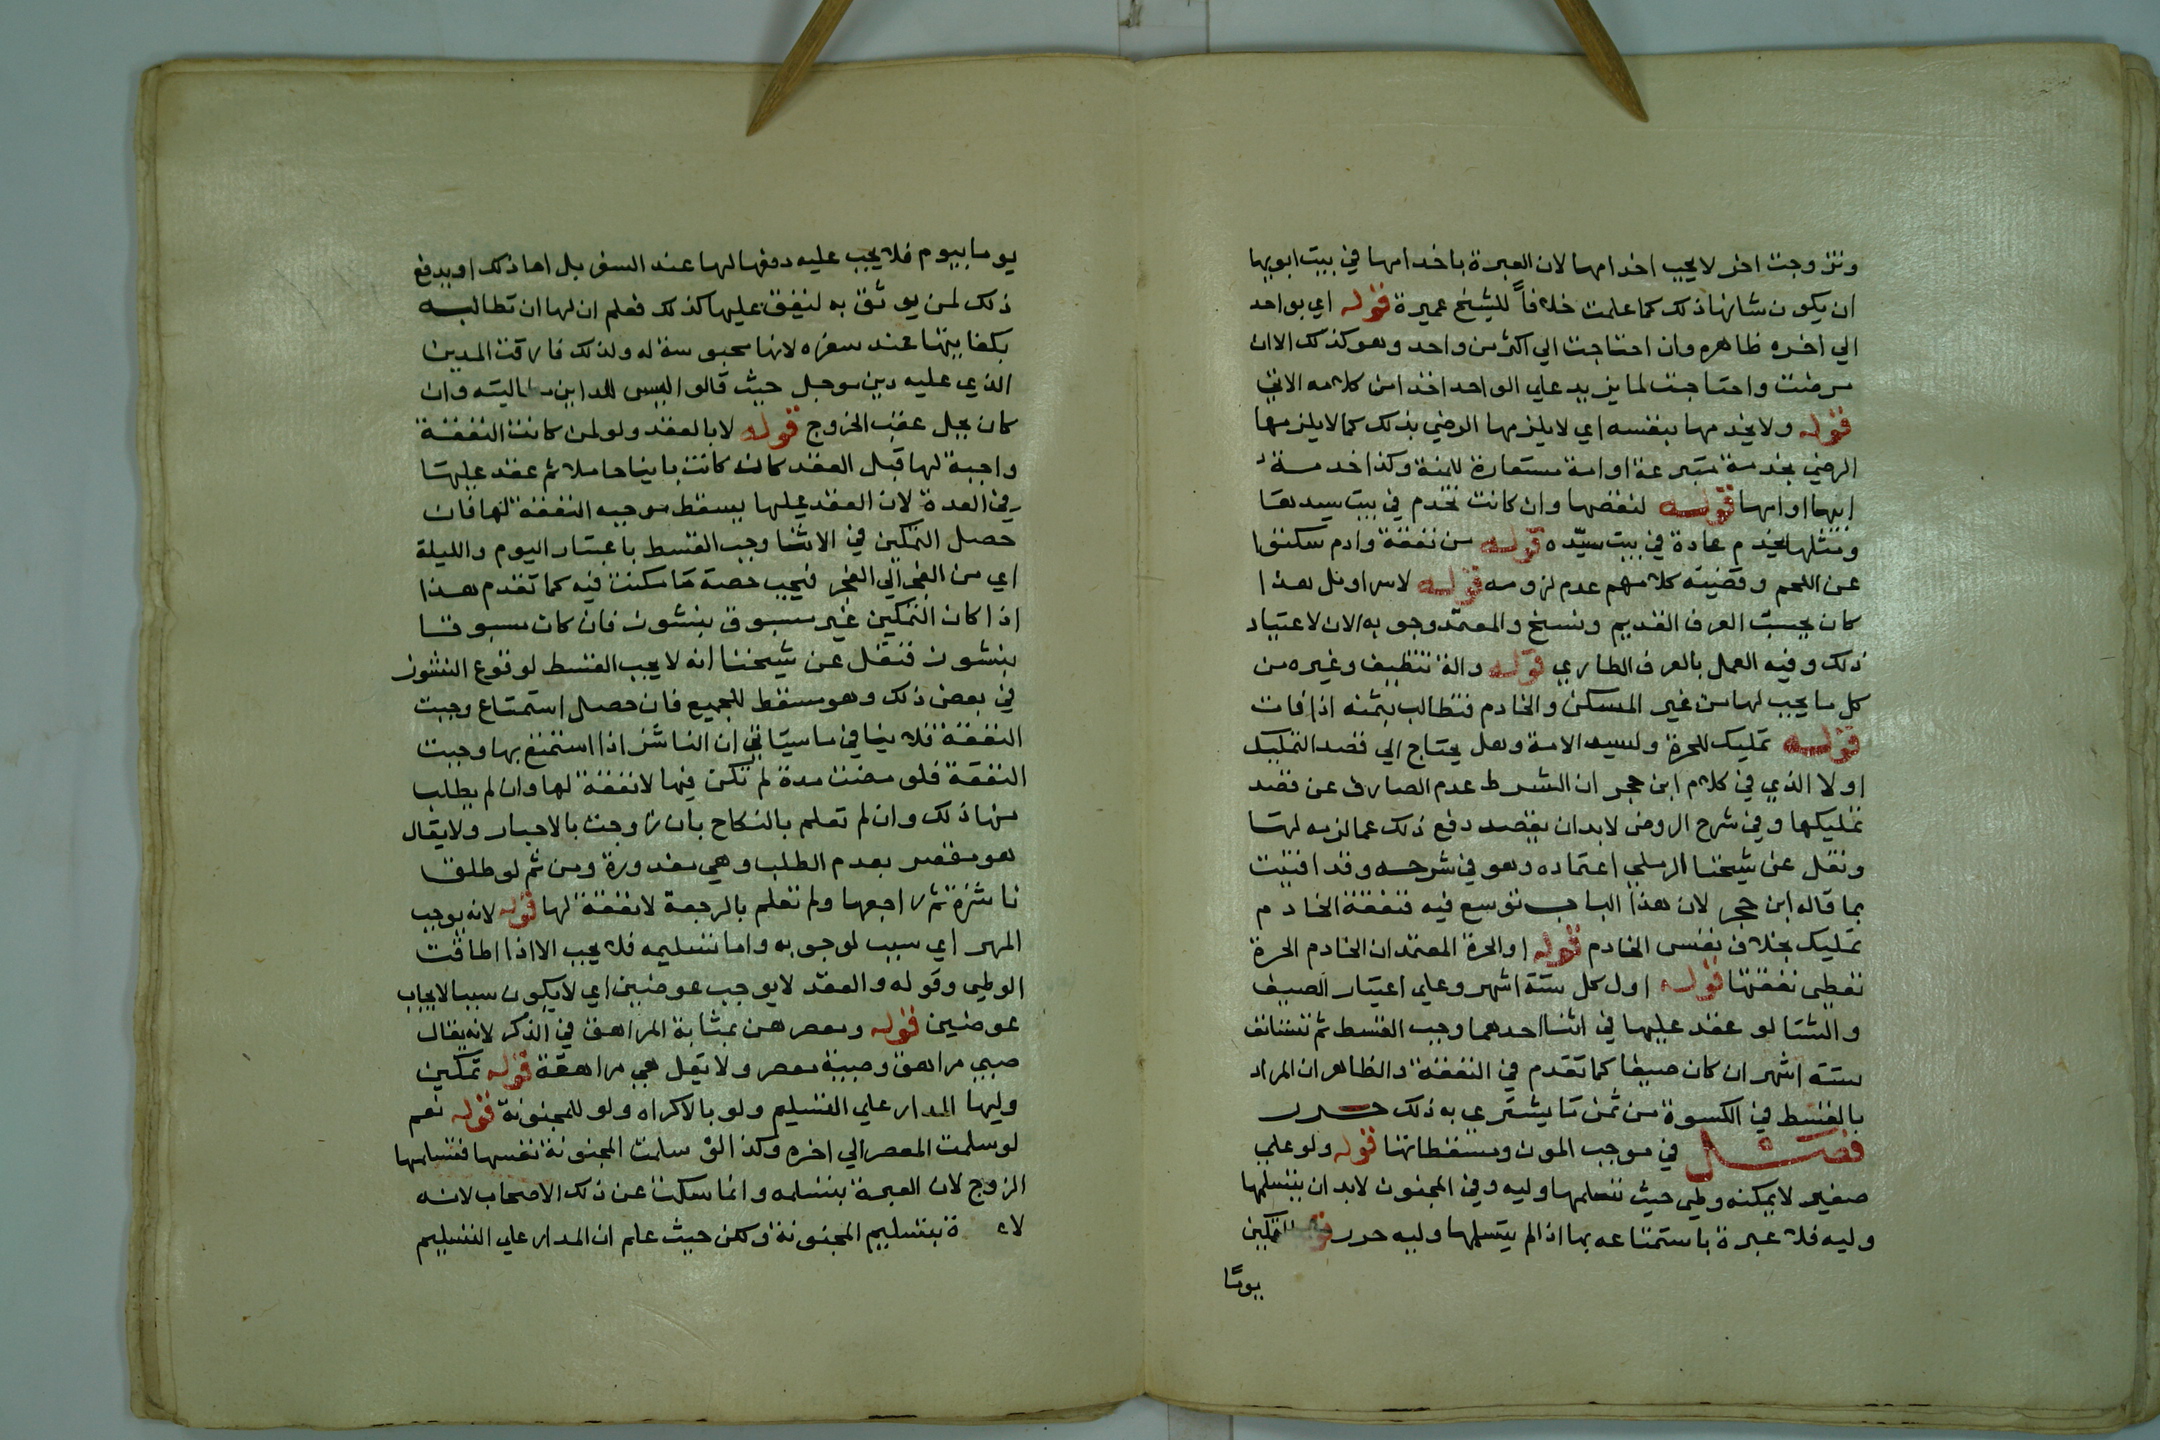 وتزوجت اخر لا يجب اخدامها لان العبرة باخدامها في بيت ابويها
ان يكون شانها ذلك كما علمت خلافاً للشيخ عميرة قوله اي بواحد
الي اخره ظاهره وان احتاجت الي اكثر من واحد وهو كذلك الا ان
مرضت واحتاجت لما يزيد علي الواحد اخذا من كلامه الاتي
قوله ولا يخدمها بنفسه اي لا يلزمها الرضي بذلك كما لا يلزمها
الرضي بخدمة متبرعة او امة مستعارة للمنة وكذا خدمة
ابيها او امها قوله لنقصها وان كانت تخدم في بيت سيدها
ومثلها يخدم عادة في بيت سيّده قوله من نفقة وادم سكتوا
عن اللحم وقضية كلامهم عدم لزومه قوله لا سراويل هذا
كان بحسب العرف القديم ونسخ والمعتمد وجوبه الان لاعتياد
ذلك وفيه العمل بالعرف الطاري قوله والة تنظيف وغيره من
كل ما يجب لها من غير المسكن والخادم فتطالب بثمنه اذا فات
قوله تمليك للحرة ولسيد الامة وهل يحتاج الي قصد التمليك
او لا الذي في كلام ابن حجر ان الشرط عدم الصارف عن قصد
تمليكها وفي شرح الروض لا بد ان يقصد دفع ذلك عما لزمه لها
ونقل عن شيخنا الرملي اعتماده وهو في شرحه وقد افتيت
بما قاله ابن حجر لان هذا الباب توسع فيه فنفقة الخادم
تمليك بخلاف نفس الخادم قوله او الحرة المعتمد ان الخادم الحرة
تعطى نفقتها قوله اول كل ستة اشهر وعلي اعتبار الصيف
والشتا لو عقد عليها في اثنا احدهما وجب القسط ثم تستانف
ستة اشهر ان كان صيفا كما تقدم في النفقة والظاهر ان المراد
بالقسط في الكسوة من ثمن ما يشتري به ذلك حرر
فصل في موجب المون ومسقطاتها قوله ولو علي
صغير لا يمكنه وطي حيث تسلمها وليه وفي المجنون لا بد ان يتسلمها
وليه فلا عبرة باستمتاعه بها اذا لم يتسلمها وليه حرر التمكين
يومًا
يوما بيوم فلا يجب عليه دفعها لها عند السفر بل اما ذلك او يدفع
ذلك لمن يوثق به لينفق عليها كذلك فعلم ان لها ان تطالبه
بكفايتها عند سفره لانها محبوسة له ولذلك فارقت المدين
الذي عليه دين موجل حيث قالوا ليس للداين مطالبته وان
كان يحل عقب الخروج قوله لا بالعقد ولو لمن كانت النفقة
واجبة لها قبل العقد كان كانت باينا حاملا ثم عقد عليها
في العدة لان العقد عليها يسقط موجبه النفقة لها فان
حصل التمكين في الاثنا وجب القسط باعتبار اليوم والليلة
اي من الفجر الي الفجر فيجب حصة ما مكنت فيه كما تقدم هذا
اذا كان التمكين غير مسبوق بنشوز فان كان مسبوقا
بنشوز فنقل عن شيخنا انه لا يجب القسط لوقوع النشوز
في بعض ذلك وهو مسقط للجميع فان حصل استمتاع وجبت
النفقة فلا ينافي ما سياتي ان الناشز اذا استمتع بها وجبت
النفقة فلو مضت مدة لم تمكن فيها لا نفقة لها وان لم يطلب
منها ذلك وان لم تعلم بالنكاح بان زوجت بالاجبار ولا يقال
هو مقصر بعدم الطلب وهي معذورة ومن ثم لو طلق
ناشزة ثم راجعها ولم تعلم بالرجعة لا نفقة لها قوله لانه يوجب
المهر اي سبب لوجوبه واما تسليمه فلا يجب الا اذا اطاقت
الوطي وقوله والعقد لا يوجب عوضين اي لا يكون سببا لايجاب
عوضين قوله ومعصر هن بمثابة المراهق في الذكر لانه يقال
صبي مراهق وصبية معصر ولا يقل هي مراهقة قوله تمكين
وليها المدار علي التسليم ولو بالاكراه ولو للمجنونة قوله نعم
لو سلمت المعصر الي اخره وكذا لو سلمت المجنونة نفسها فتسلمها
الزوج لان العبرة بتسلمه وانما سكت عن ذلك الاصحاب لانه
لا ة بتسليم المجنونة ولكن حيث علم ان المدار علي التسليم